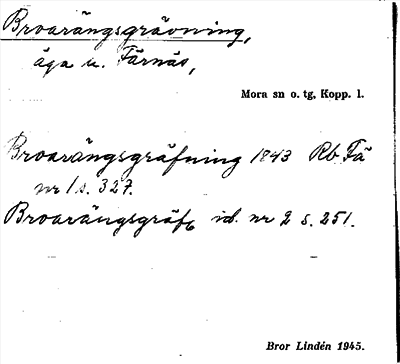 Broarängsgrävning,
äga u. Färnäs,
Mora sn o. tg, Kopp. l.
Broarängsgräfning 1843 Rb Fä
nr 1 s. 327.
Broarängsgräfg id. nr 2 s. 251.
Bror Lindén 1945.